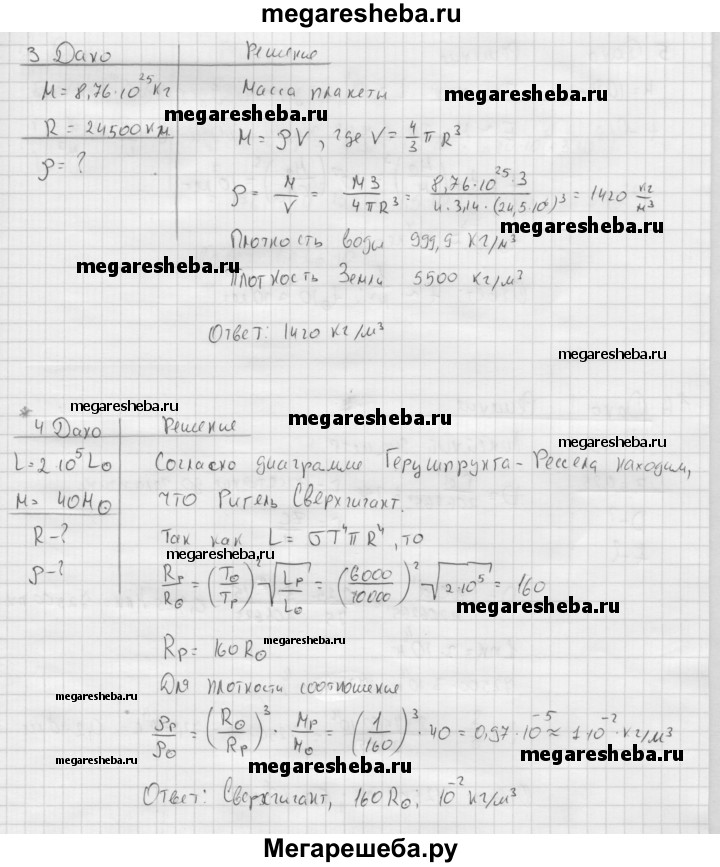 megaresheba.ru
3 Дано Решение
M = 8,76·10²⁵ кг Масса планеты
megaresheba.ru
megaresheba.ru
R = 24500 км M = ρV, где V = 4/3 π R³
ρ = ?
ρ = M/V = M3/4πR³ = 8,76·10²⁵·3/4·3,14·(24,5·10⁶)³ = 1420 кг/м³
megaresheba.ru
Плотность воды 999,9 кг/м³
megaresheba.ru
Плотность Земли 5500 кг/м³
Ответ: 1420 кг/м³
megaresheba.ru
megaresheba.ru
megaresheba.ru
* 4 Дано Решение
megaresheba.ru
L = 2·10⁵ L⊙ Согласно диаграмме Герушпрунга-Рессела находим,
M = 40M⊙ что Ригель Сверхгигант.
R - ? Так как L = σT⁴πR⁴, то
megaresheba.ru
ρ - ? Rр/R⊙ = (T⊙/Tр)² √(Lр/L⊙) = (6000/10000)² √(2·10⁵) = 160
megaresheba.ru
megaresheba.ru
Rр = 160R⊙
Для плотности соотношение
megaresheba.ru
megaresheba.ru
ρр/ρ⊙ = (R⊙/Rр)³ · Mр/M⊙ = (1/160)³ · 40 = 0,97·10⁻⁵ ≈ 1·10⁻² кг/м³
megaresheba.ru
megaresheba.ru
megaresheba.ru
Ответ: Сверхгигант, 160R⊙; 10⁻² кг/м³
megaresheba.ru
Мегарешеба.ру